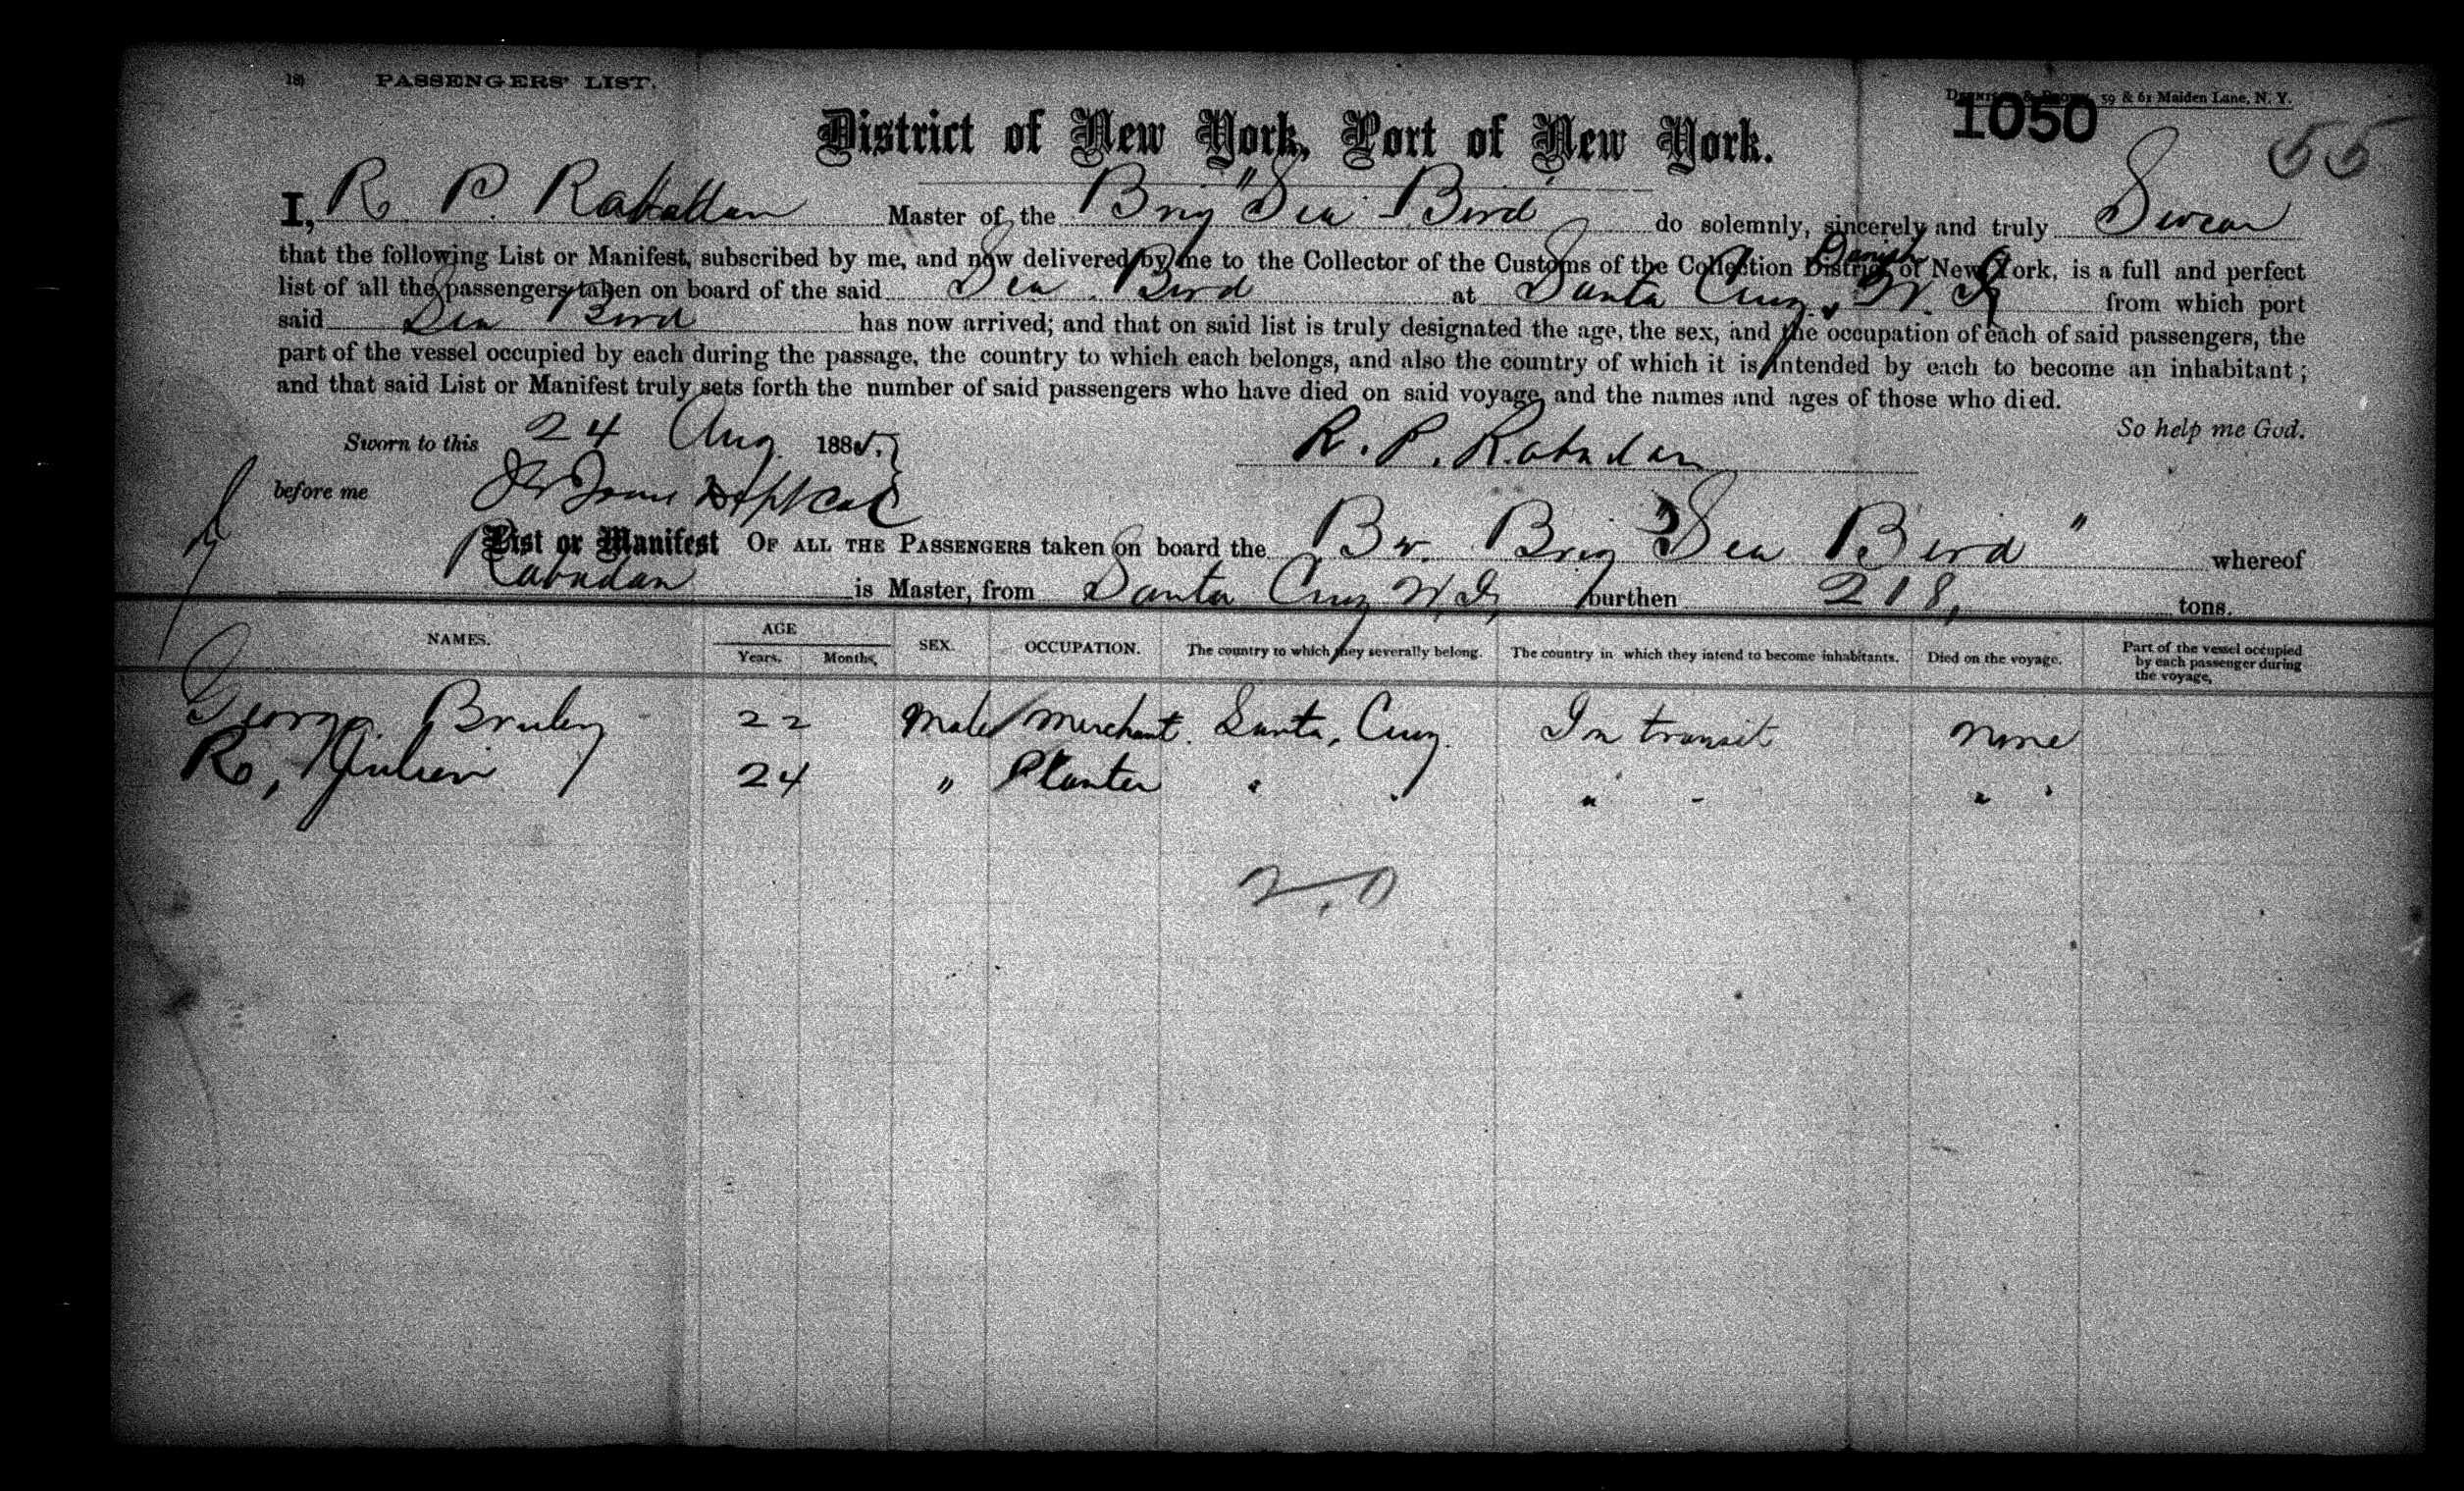 18) PASSENGERS' LIST.
59 & 61 Maiden Lane, N. Y.
1050
55
District of New York, Port of New York.
I, R. P. Rabadan Master of the Brig "Sea Bird do solemnly, sincerely and truly Swear
that the following List or Manifest, subscribed by me, and now delivered by me to the Collector of the Customs of the Collection District of New York, is a full and perfect
Danish
list of all the passengers taken on board of the said Sea Bird at Santa Cruz, W. I. from which port
said Sea Bird has now arrived; and that on said list is truly designated the age, the sex, and the occupation of each of said passengers, the
part of the vessel occupied by each during the passage, the country to which each belongs, and also the country of which it is intended by each to become an inhabitant;
and that said List or Manifest truly sets forth the number of said passengers who have died on said voyage, and the names and ages of those who died.
So help me God.
Sworn to this 24 Aug 1885.
R. P. Rabadan
before me
List or Manifest OF ALL THE PASSENGERS taken on board the Br. Brig "Sea Bird" whereof
Rabadan is Master, from Santa Cruz W. I, burthen 218, tons.
NAMES. AGE Years. Months, SEX. OCCUPATION. The country to which they severally belong. The country in which they intend to become inhabitants. Died on the voyage. Part of the vessel occupied by each passenger during the voyage,
George 22 Male Merchant. Santa, Cruz. In transit none
R, 24 " Planter " " " " " "